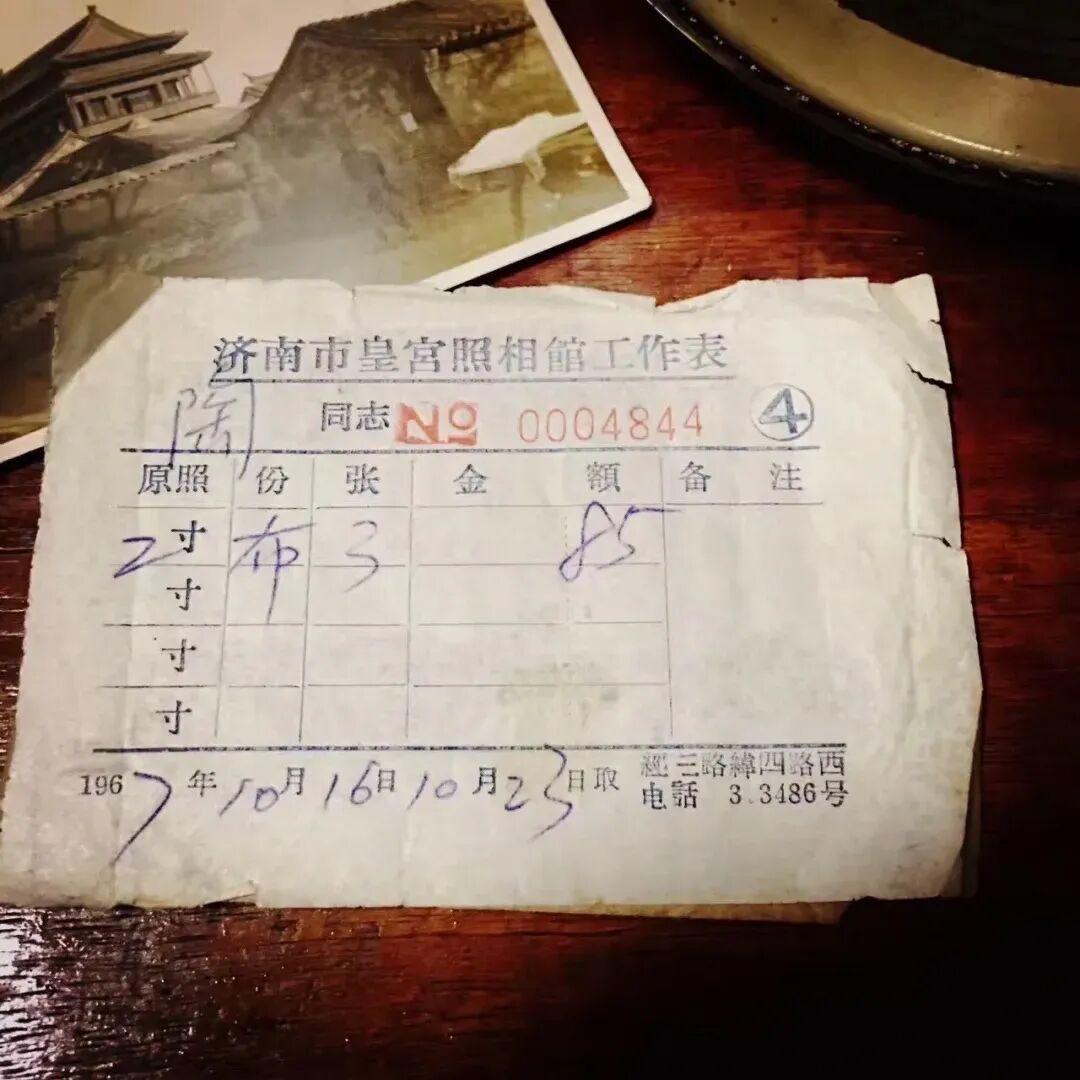 济南市皇宫照相館工作表
陶 同志 No 0004844 ④
原照 份 张 金 額 备 注
2寸 布 3 85
寸
寸
寸
1967年10月16日10月23日取
經三路緯四路西
电話 3.3486号